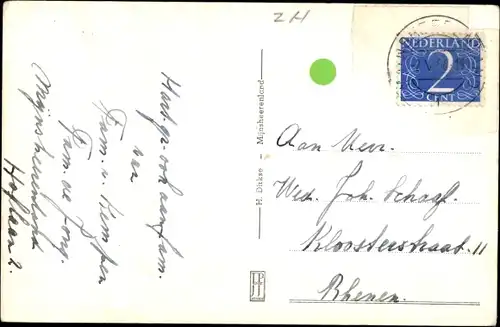 ZH
NEDERLAND
2
CENT
Hart. gr. ook aan fam.
van
Fam. v. Kempen
Fam. de Jong.
Mijnsheerenland
Hoflaan 2.
H. Dickse - Mijnsheerenland
Aan Mevr.
Wed. Joh. Schaaf.
Kloosterstraat 11
Rhenen.